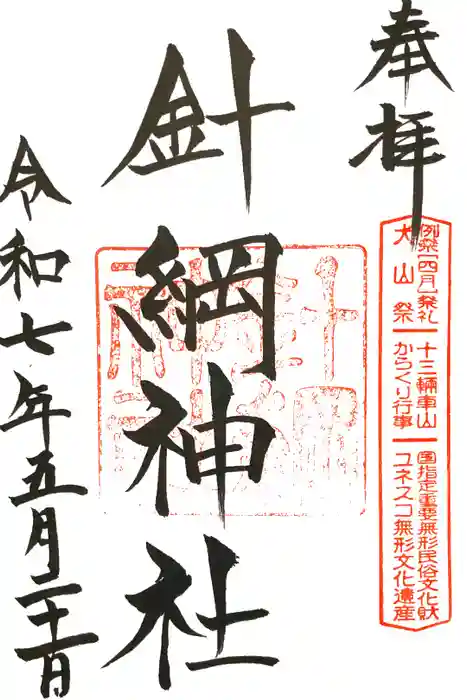 奉拝
例祭[四月]祭礼
犬山祭
十三輛車山
からくり行事
国指定重要無形民俗文化財
ユネスコ無形文化遺産
針綱神社
令和七年五月二十一日